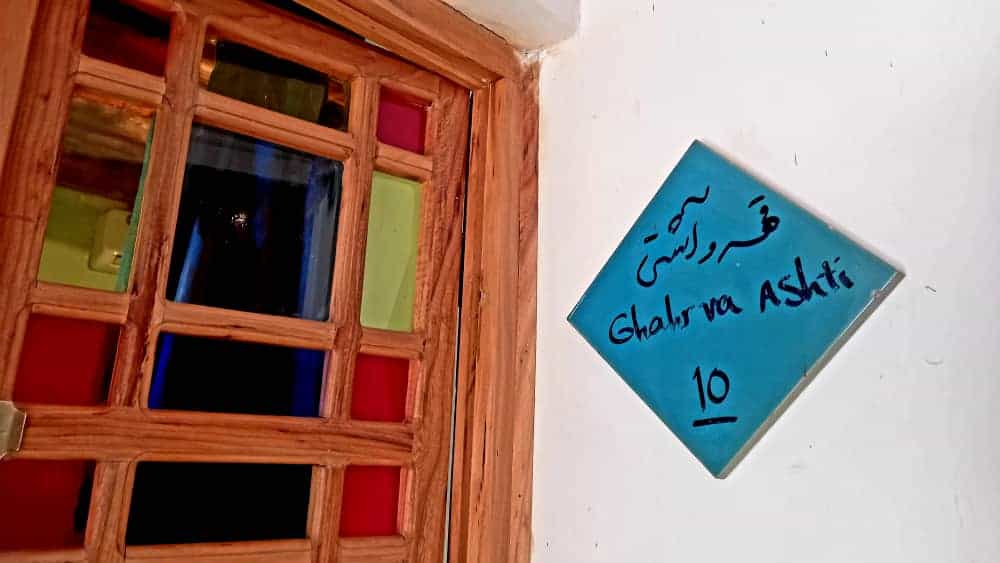 قهر و آشتی
Ghahr va AShti
10